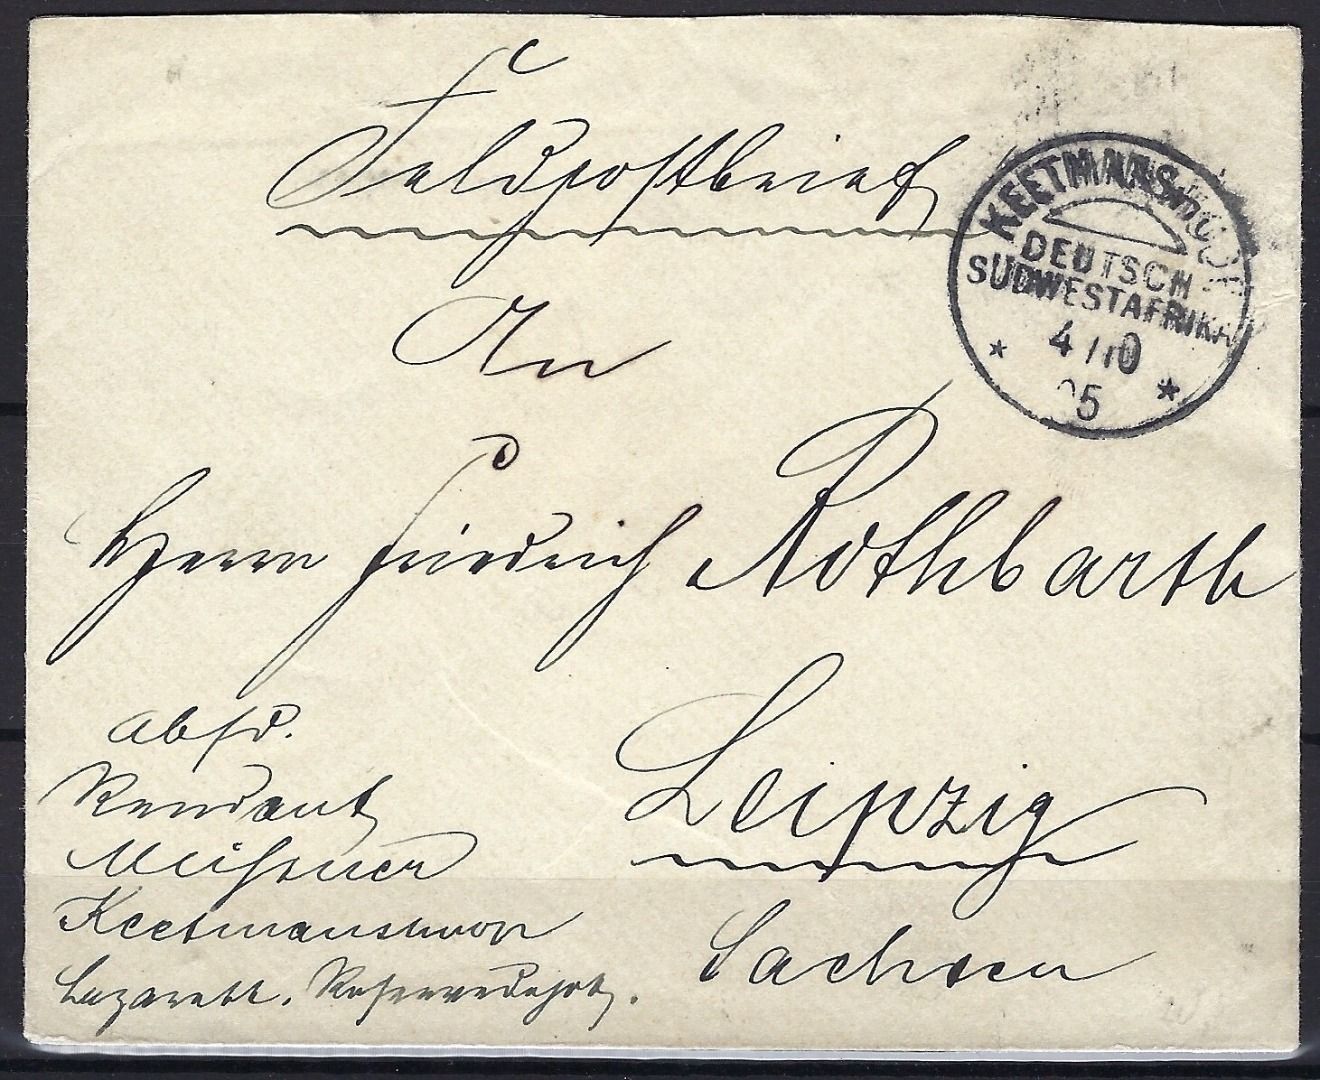 Feldpostbrief
KEETMANSHOOP
DEUTSCH-
SÜDWESTAFRIKA
4/10
05
An
Herrn Friedrich Rothbarth
Leipzig
Sachsen
Absd.
Rendant
Meißner
Keetmanshoop
Lazarett. Reservedepot.